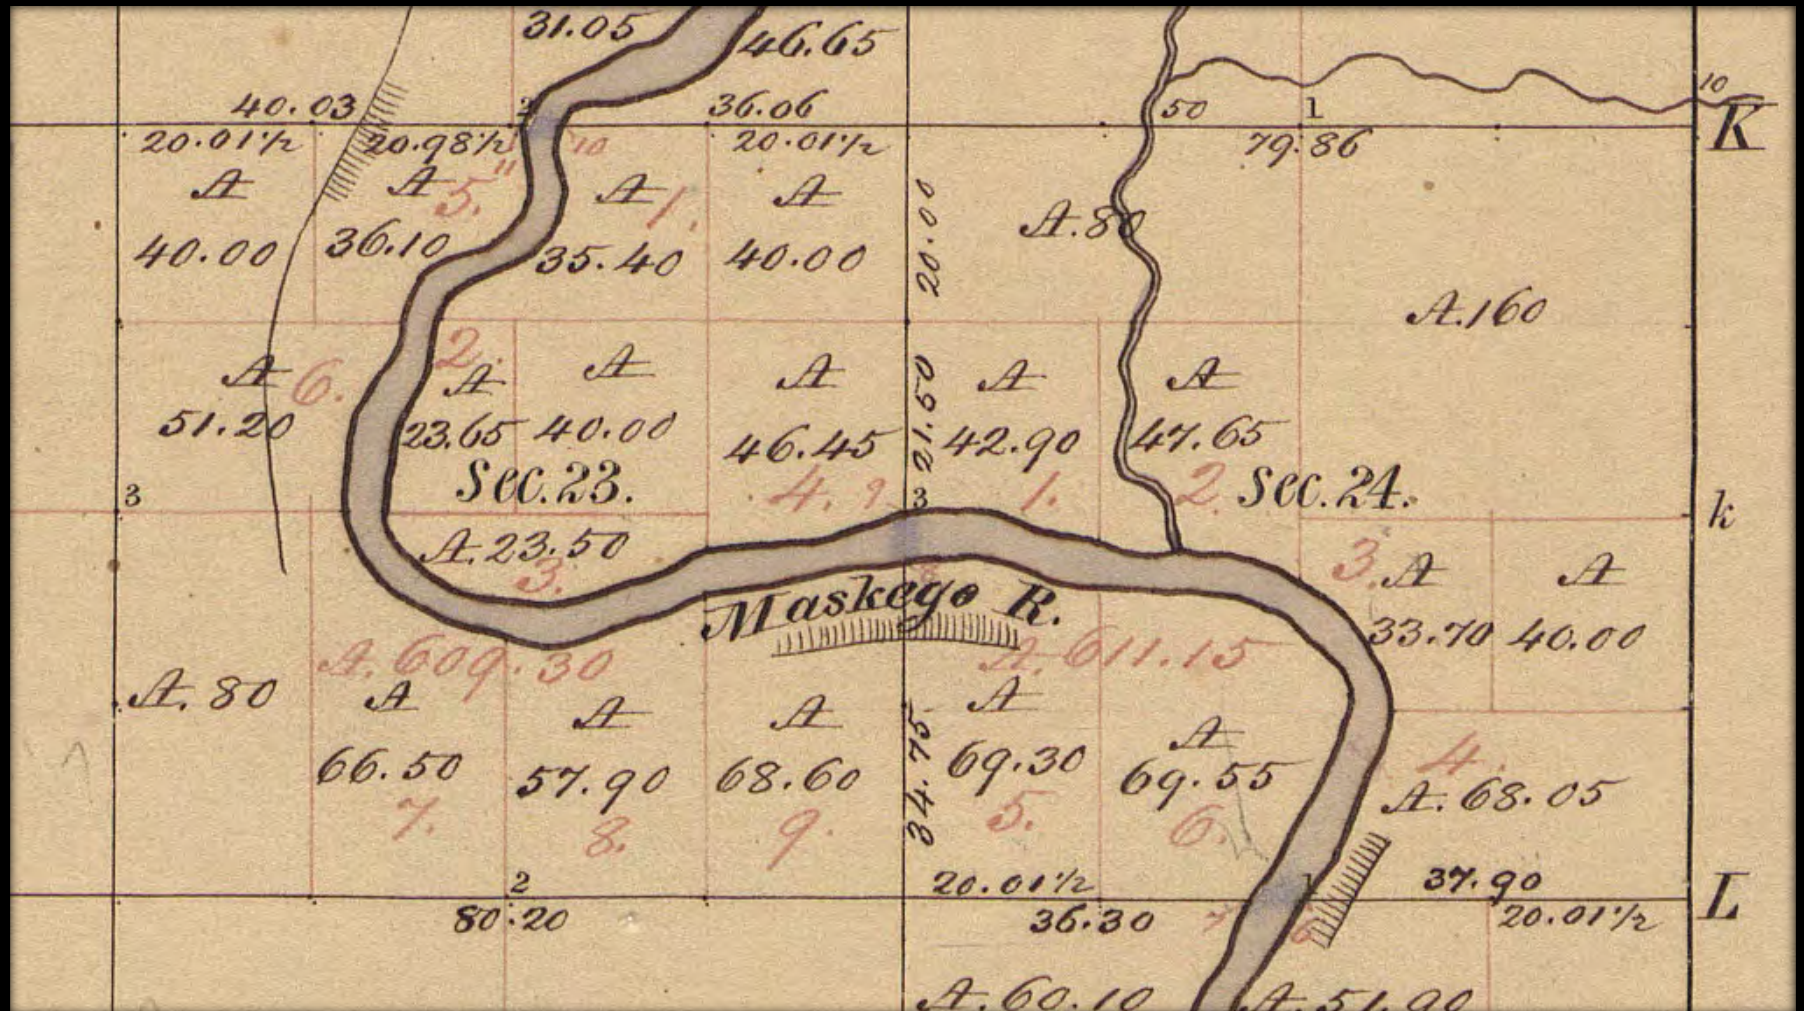 31.05
46.65
40.03 2 36.06 50 1 10
K
20.01½ 20.98½ 10 20.01½ 79.86
11
A A 5. A 1. A
20.00
A.80
40.00 36.10 35.40 40.00
A.160
2.
A 6. A A A A A
21.50
51.20 23.65 40.00 46.45 42.90 47.65
Sec. 23. 4. 9 1. 2. Sec. 24.
3 3 k
A. 23.50
3. 3. A A
8
Maskego R.
33.70 40.00
A. 609.30 A. 611.15
A. 80 A A A A A
34.75
66.50 57.90 68.60 69.30 69.55
4.
A. 68.05
7. 8. 9. 5. 6.
2 20.01½ 1 37.90
L
80.20 36.30 7 6 20.01½
A. 60.10 A. 51.90